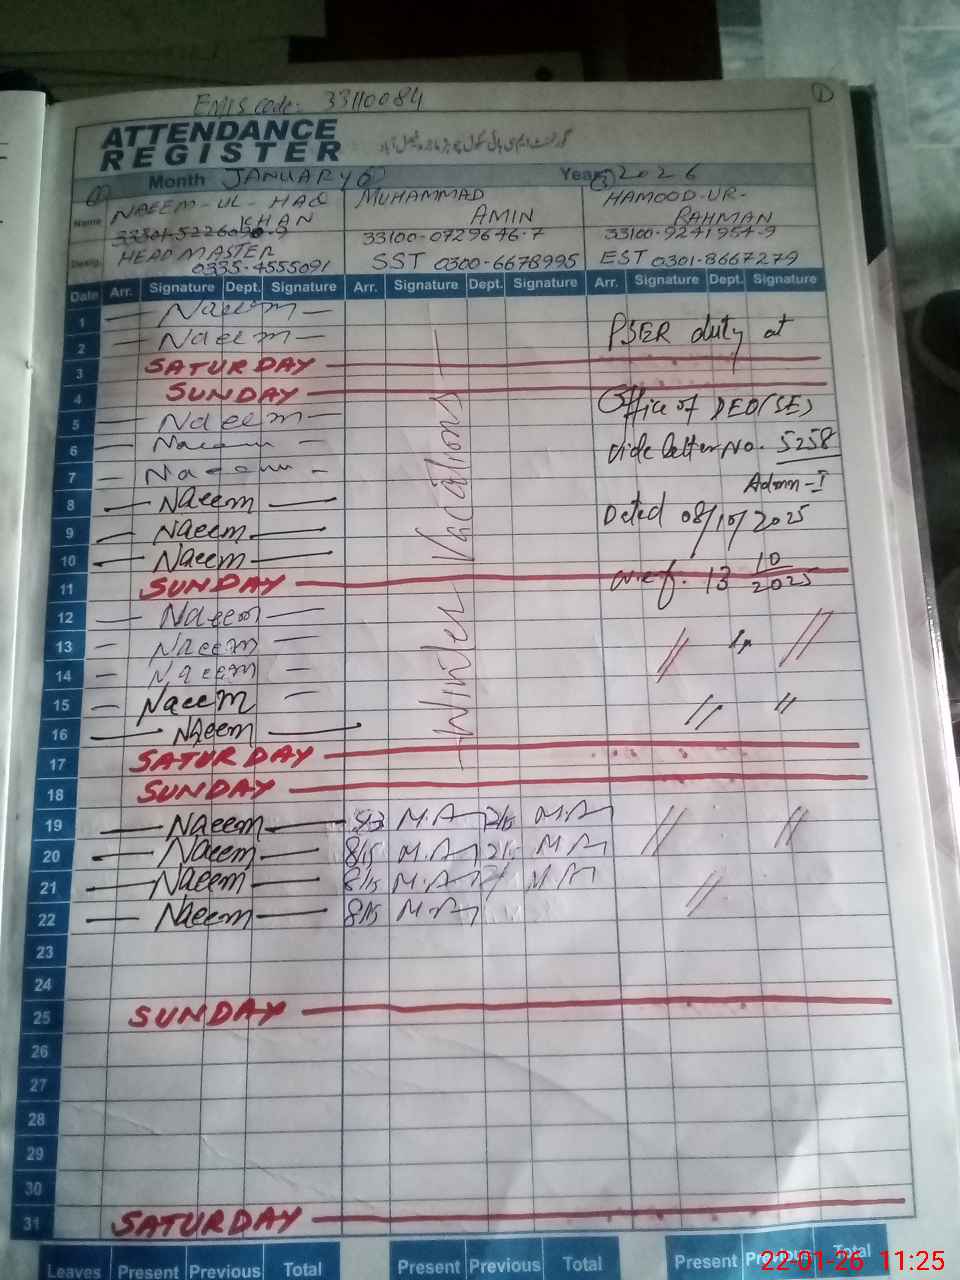 EMIS code: 33110084
1
ATTENDANCE
REGISTER
Month JANUARY
Year 2026
Name NAEEM-UL-HAQ KHAN
MUHAMMAD AMIN
HAMOOD-UR-RAHMAN
33100-0729646-7
33100-9241954-9
Desig. HEADMASTER
0335-4555091
SST 0300-6678995
EST 0301-8667279
Date Arr. Signature Dept. Signature Arr. Signature Dept. Signature Arr. Signature Dept. Signature
1 — Naeem —
2 — Naeem —
PSER duty at
3 SATURDAY
4 SUNDAY
Office of DEO(SE)
5 — Naeem —
6 — Naeem —
vide letter No. 5258
7 — Naeem —
Admn-I
8 — Naeem —
Dated 08/10/2025
9 — Naeem —
10 — Naeem —
11 SUNDAY
w.e.f. 13 10/2025
Winter Vacations
12 — Naeem —
13 — Naeem —
14 — Naeem —
15 — Naeem —
16 — Naeem —
17 SATURDAY
18 SUNDAY
19 — Naeem — M.A M.A
20 — Naeem — 8/15 M.A M.A
21 — Naeem — 8/15 M.A M.A
22 — Naeem — 8/15 M.A
23
24
25 SUNDAY
26
27
28
29
30
31 SATURDAY
Leaves Present Previous Total Present Previous Total Present Previous Total
22-01-26 11:25